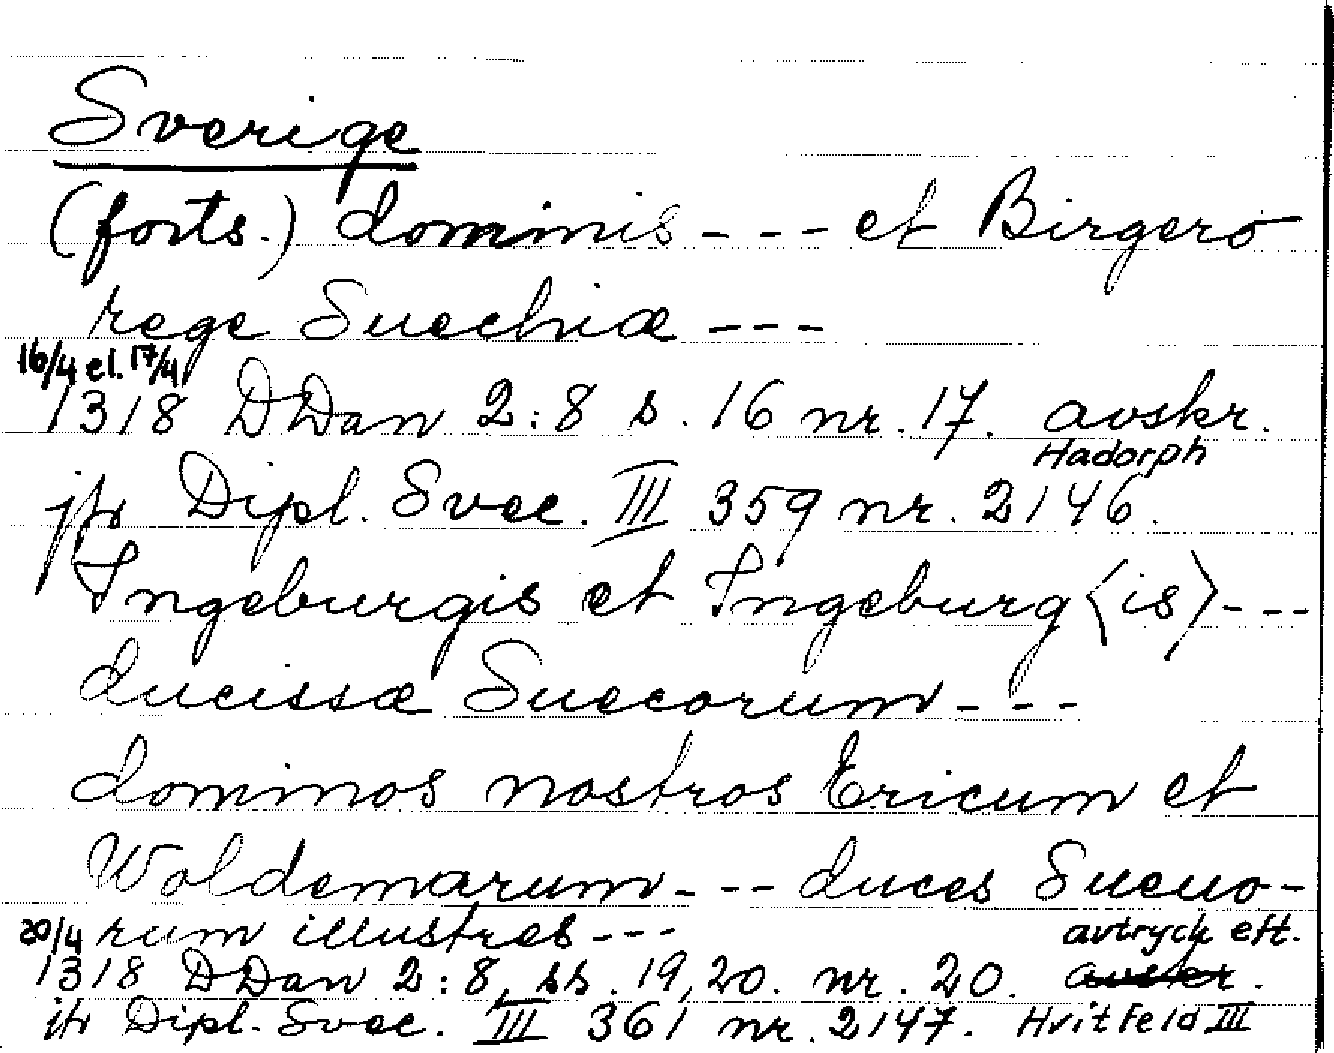 Sverige
(forts.) dominis --- et Birgero
rege Suechiæ ---
16/4 el. 17/4
1318 DDan 2:8 s. 16 nr. 17. avskr.
Hadorph
jfr Dipl. Svec. III 359 nr. 2146.
Ingeburgis et Ingeburg⟨is⟩---
ducissæ Suecorum---
dominos nostros Ericum et
Woldemarum--- duces Sueuo-
20/4 rum illustres--- avtryck eft.
1318 DDan 2:8, ss. 19,20. nr. 20. avskr.
jfr Dipl. Svec. III 361 nr. 2147. Hvitfeld III